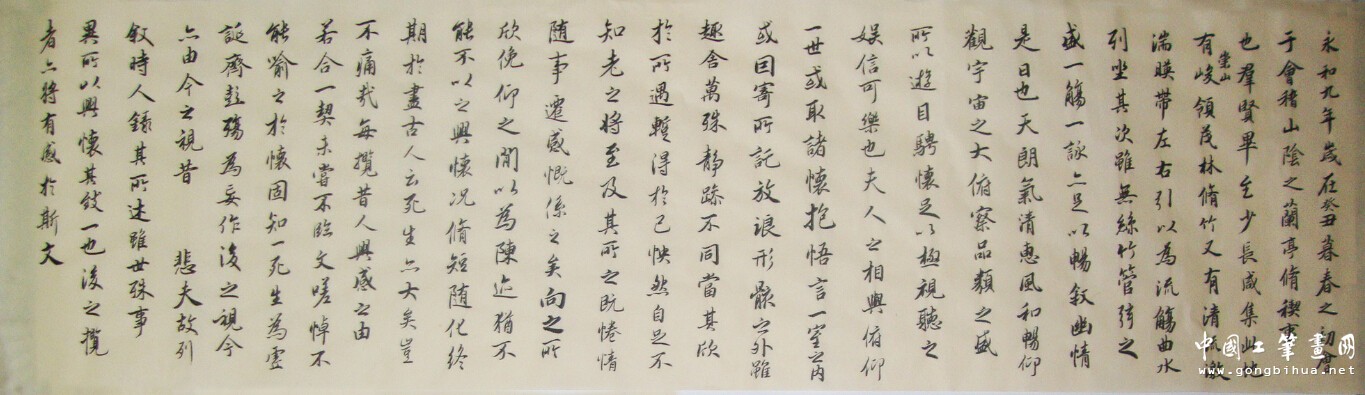 永和九年歲在癸丑暮春之初會
于會稽山陰之蘭亭脩禊事
也羣賢畢至少長咸集此地
有崇山峻領茂林脩竹又有清流激
湍暎帶左右引以為流觴曲水
列坐其次雖無絲竹管弦之
盛一觴一詠亦足以暢叙幽情
是日也天朗氣清惠風和暢仰
觀宇宙之大俯察品類之盛
所以遊目騁懷足以極視聽之
娛信可樂也夫人之相與俯仰
一世或取諸懷抱悟言一室之內
或因寄所託放浪形骸之外雖
趣舍萬殊靜躁不同當其欣
於所遇蹔得於己怏然自足不
知老之將至及其所之既惓情
隨事遷感慨係之矣向之所
欣俛仰之閒以為陳迹猶不
能不以之興懷況脩短隨化終
期於盡古人云死生亦大矣豈
不痛哉每攬昔人興感之由
若合一契未嘗不臨文嗟悼不
能喻之於懷固知一死生為虛
誕齊彭殤為妄作後之視今
亦由今之視昔 悲夫故列
敘時人錄其所述雖世殊事
異所以興懷其致一也後之攬
者亦將有感於斯文
中國工筆畫网
www.gongbihua.net